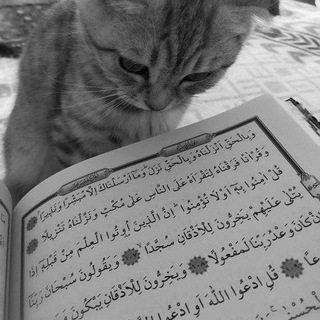 وَبِالْحَقِّ اَنْزَلْنَاهُ وَبِالْحَقِّ نَزَلَ وَمَٓا اَرْسَلْنَاكَ اِلَّا مُبَشِّرًا وَنَذِيرًا
وَقُرْاٰنًا فَرَقْنَاهُ لِتَقْرَاَهُ عَلَى النَّاسِ عَلٰى مُكْثٍ وَنَزَّلْنَاهُ تَنْزِيلًا
قُلْ اٰمِنُوا بِهٖٓ اَوْ لَا تُؤْمِنُوا اِنَّ الَّذِينَ اُوتُوا الْعِلْمَ مِنْ قَبْلِهٖٓ اِذَا
يُتْلٰى عَلَيْهِمْ يَخِرُّونَ لِلْاَذْقَانِ سُجَّدًا وَيَقُولُونَ سُبْحَانَ رَبِّنَٓا
اِنْ كَانَ وَعْدُ رَبِّنَا لَمَفْعُولًا وَيَخِرُّونَ لِلْاَذْقَانِ يَبْكُونَ
قُلِ ادْعُوا اللّٰهَ اَوِ ادْعُوا